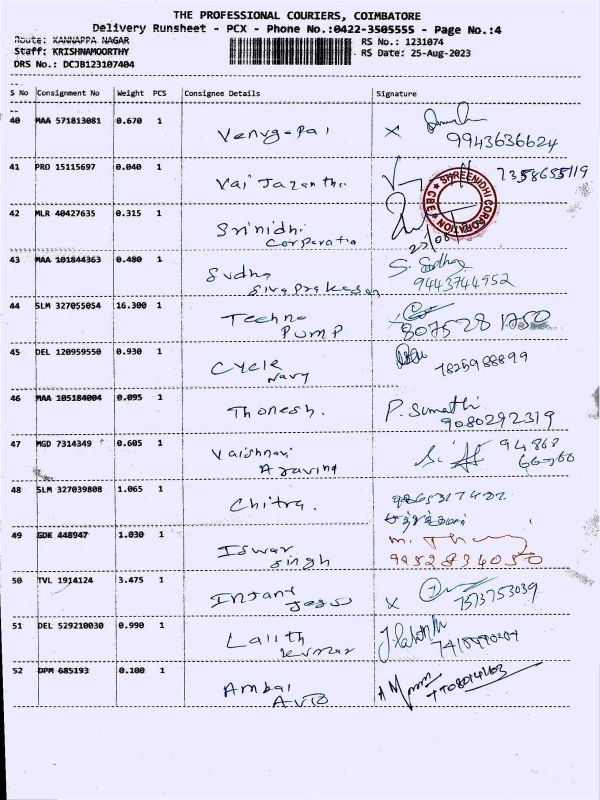 THE PROFESSIONAL COURIERS, COIMBATORE
Delivery Runsheet - PCX - Phone No.:0422-3505555 - Page No.:4
Route: KANNAPPA NAGAR
RS No.: 1231074
Staff: KRISHNAMOORTHY
RS Date: 25-Aug-2023
DRS No.: DCJB123107404
S No Consignment No Weight PCS Consignee Details Signature
40 MAA 571813081 0.670 1
Venugopal
x 9943636624
41 PRO 15115697 0.040 1
Vaijayanthi
7358655119
SHREENIDHI CORPORATION
★ CBE ★
42 MLR 40427635 0.315 1
Srinidhi
Corporatio
43 MAA 101844363 0.480 1
Sudha
Sivaprakasan
S. Sudha
9443744952
44 SLM 327055054 16.300 1
Techno
Pump
807528 1750
45 DEL 120959550 0.930 1
Cycle
Navy
7825988899
46 MAA 105184004 0.095 1
Thonesh.
P. Sumathi
9080292319
47 MGD 7314349 0.605 1
Vaishnavi
Aravind
94868
48 SLM 327039808 1.065 1
Chitra.
49 GDK 448947 1.030 1
Iswar
Singh
9952834050
50 TVL 1914124 3.475 1
Infant
Jesus
x 7373753039
51 DEL 529210030 0.990 1
Lalith
Kumar
52 DPM 685193 0.100 1
Ambal
Auto